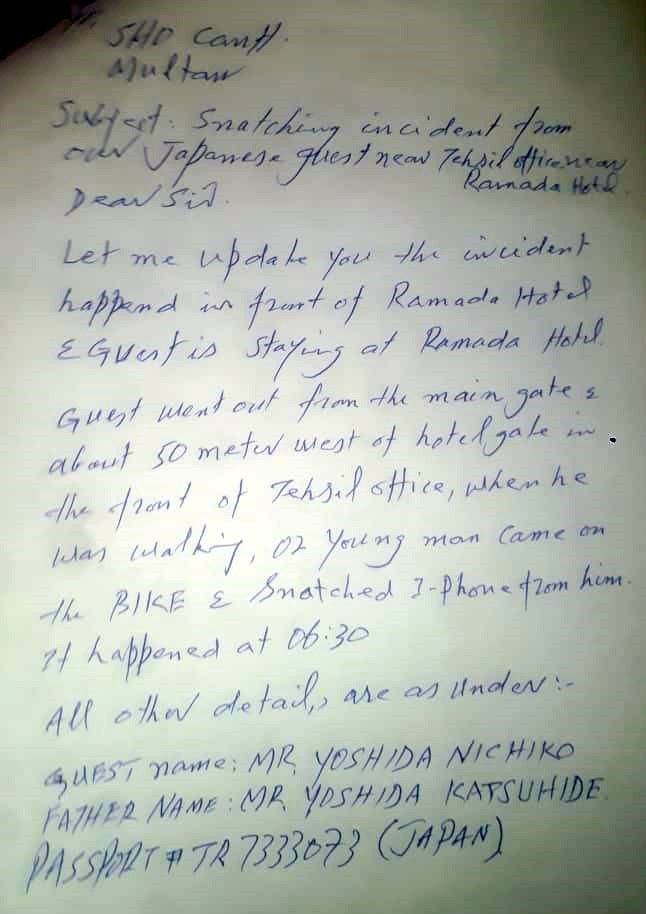 SHO Cantt.
Multan
Subject: Snatching incident from
our Japanese guest near Tehsil office near
Ramada Hotel.
Dear Sir.
Let me update you the incident
happend in front of Ramada Hotel
& Guest is staying at Ramada Hotel.
Guest went out from the main gate &
about 50 meter west of hotel gate in
the front of Tehsil office, when he
was walking, 02 young man came on
the BIKE & Snatched I-Phone from him.
It happened at 06:30
All other details are as under:-
GUEST name: MR. YOSHIDA NICHIKO
FATHER NAME: MR. YOSHIDA KATSUHIDE.
PASSPORT # TR 7333073 (JAPAN)